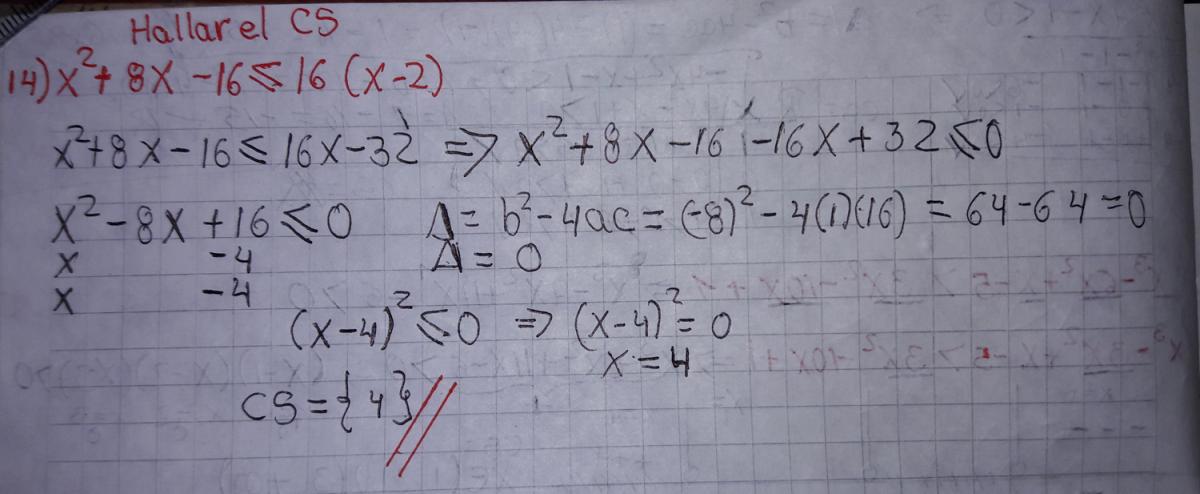 Hallar el CS
14) x² + 8x - 16 ≤ 16 (x-2)
x² + 8x - 16 ≤ 16x - 32 => x² + 8x - 16 - 16x + 32 ≤ 0
x² - 8x + 16 ≤ 0 Δ = b² - 4ac = (-8)² - 4(1)(16) = 64 - 64 = 0
x -4 Δ = 0
x -4
(x-4)² ≤ 0 => (x-4)² = 0
x = 4
CS = {4}//